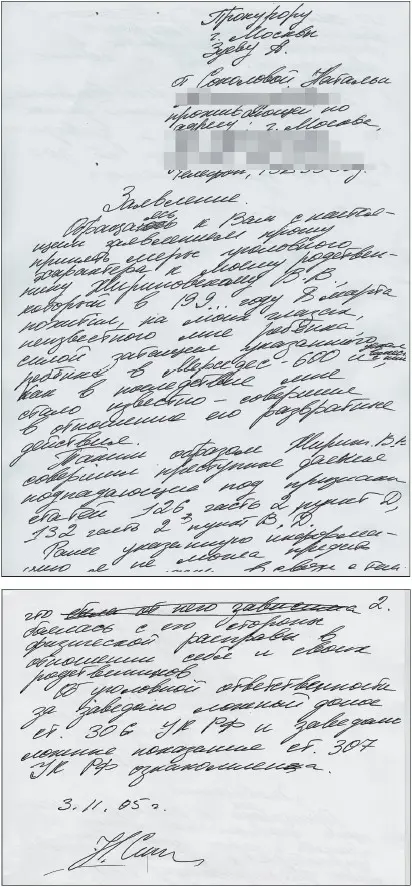 Прокурору
г. Москвы
Зуеву А.
от Соколовой Натальи
проживающей по
адресу: г. Москва,
телефон,
Заявление.
Обращаюсь к Вам с настоя-
щим заявлением прошу
принять меры уголовного
характера к моему родствен-
нику Жириновскому В.В.,
который в 199.. году 8 марта
похитил, на моих глазах,
неизвестного мне ребёнка,
силой затащил указанного
ребёнка в Мерседес-600 и,
как в последствие мне
стало известно - совершил
в отношение его развратные
действия.
Таким образом Жирин. В.В.
совершил преступные деяния
подпадающие под признаки
статей 126 часть 2 пункт Д,
132 часть 2 3 пункт В, Д.
Ранее указанную информа-
цию я не могла предать
в связи с тем
что была от него зависима 2.
боялась с его стороны
физической расправы в
отношении себя и своих
родственников
Об уголовной ответственности
за заведомо ложный донос
ст. 306 УК РФ и заведомо
ложные показания ст. 307
УК РФ ознакомлена.
3.11.05 г.